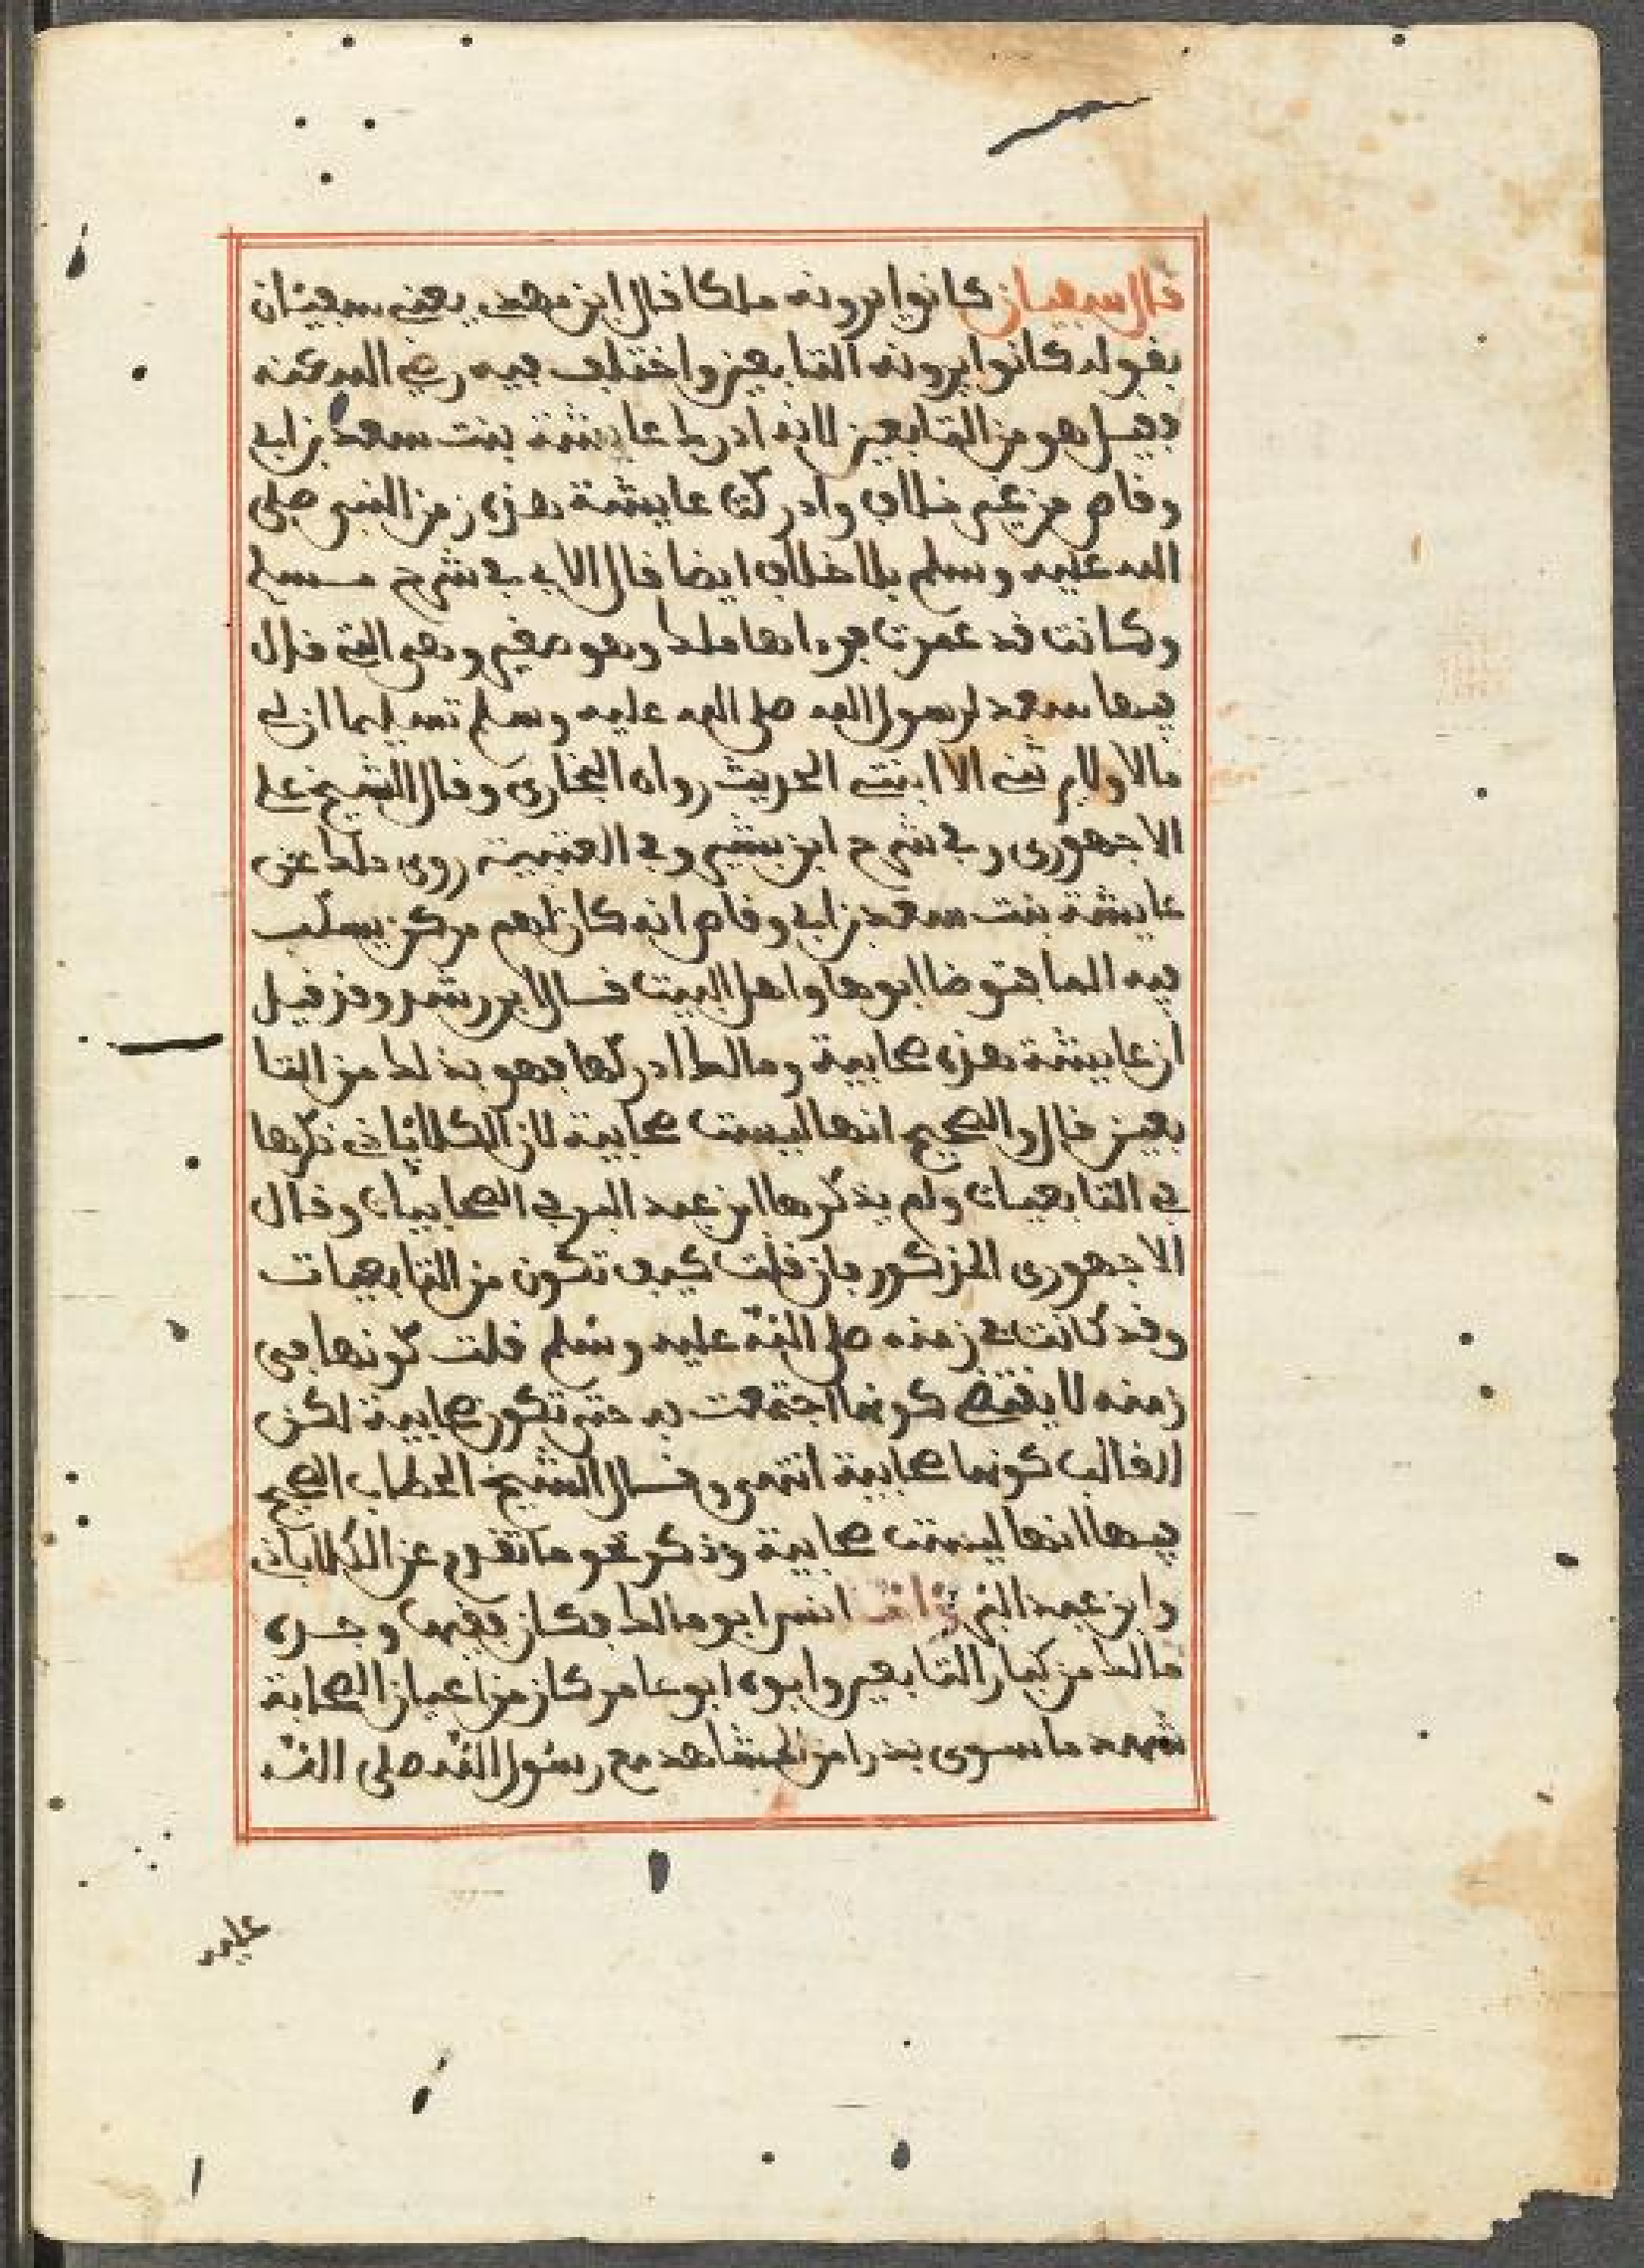 قال سفيان كانوا يرونه ملكا قال ابن مهدي يعني سفيان
بقوله كانوا يرونه التابعين واختلف فيه رضي الله عنه
فقيل هو من التابعين لانه ادرك عايشة بنت سعد بن ابي
وقاص من غير خلاف وادركت عايشة هذه زمن النبي صلى
الله عليه وسلم بلا خلاف ايضا قال الابي في شرح مسلم
وكانت قد عمرت وهو صغير وهي التي قال
فيها سعد لرسول الله صلى الله عليه وسلم تسليما ان لي
مالا ولا يرثني الا ابنتي الحديث رواه البخاري وقال الشيخ علي
الاجهوري وفي شرح ابن بشير وفي العتبية روى ملك عن
عايشة بنت سعد بن ابي وقاص انه كان لهم مركن يسكب
فيه الما فتوضا ابوها واهل البيت قال ابن رشد وقد قيل
ان عايشة هذه صحابية ومالك ادركها فهو بذلك من التا
بعين قال والصحيح انها ليست صحابية لان الكلاباذي ذكرها
في التابعيات ولم يذكرها ابن عبد البر في الصحابيات وقال
الاجهوري المذكور فان قلت كيف تكون من التابعيات
وقد كانت في زمنه صلى الله عليه وسلم قلت كونها في
زمنه لا يقتضي كونها اجتمعت به حتى تكون صحابية لكن
الغالب كونها صحابية انتهى وقال الشيخ الحطاب الصحيح
فيها انها ليست صحابية وذكر نحو ما تقدم عن الكلاباذي
وابن عبد البر واما انس ابو مالك فكان فقيها وجد
مالك من كبار التابعين وابوه ابو عامر كان من اعيان الصحابة
شهد ما سوى بدرا من المشاهد مع رسول الله صلى الله
عليه